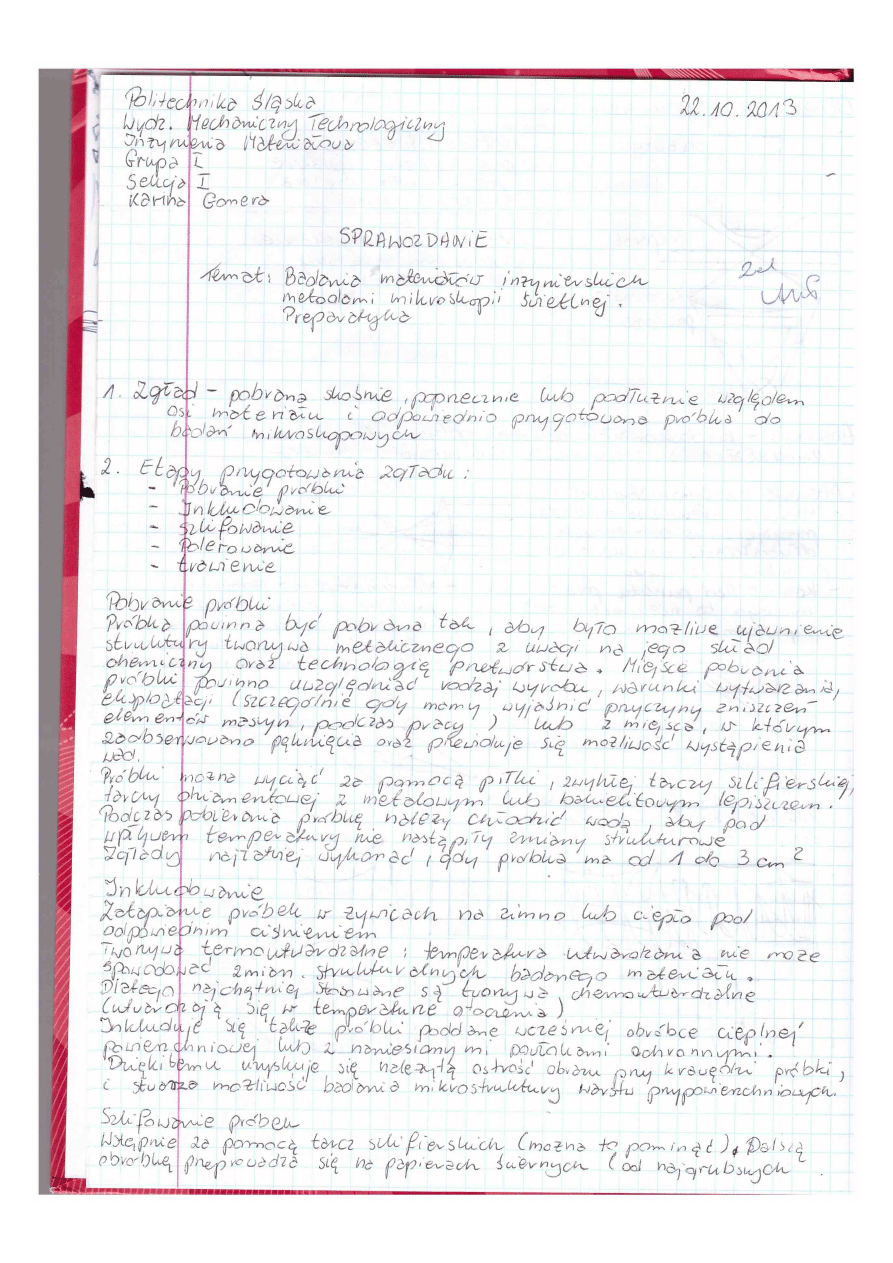 Politechnika Śląska
22.10.2013
Wydz. Mechaniczny Technologiczny
Inżynieria Materiałowa
Grupa I
Sekcja I
Karina Gomera
SPRAWOZDANIE
Temat: Badania materiałów inżynierskich
metodami mikroskopii świetlnej.
Preparatyka
1. Zgład – pobrana skośnie, poprzecznie lub podłużnie względem
osi materiału i odpowiednio przygotowana próbka do
badań mikroskopowych
2. Etapy przygotowania zgładu:
- Pobranie próbki
- Inkludowanie
- szlifowanie
- Polerowanie
- trawienie
Pobranie próbki
Próbka powinna być pobrana tak, aby było możliwe ujawnienie
struktury tworzywa metalicznego z uwagi na jego skład
chemiczny oraz technologię przetwórstwa. Miejsce pobrania
próbki powinno uwzględniać rodzaj wyrobu, warunki wytwarzania,
eksploatacji (szczególnie gdy mamy wyjaśnić przyczyny zniszczeń
elementów maszyn, podczas pracy) lub z miejsca, w którym
zaobserwowano pęknięcia oraz przewiduje się możliwość wystąpienia
wad.
Próbki można wyciąć za pomocą piłki, zwykłej tarczy szlifierskiej,
tarczy diamentowej z metalowym lub bakielitowym lepiszczem.
Podczas pobierania próbkę należy chłodzić wodą, aby pod
wpływem temperatury nie nastąpiły zmiany strukturowe
Zgłady najłatwiej wykonać, gdy próbka ma od 1 do 3 cm²
Inkludowanie
Zatapianie próbek w żywicach na zimno lub ciepło pod
odpowiednim ciśnieniem
Tworzywa termoutwardzalne: temperatura utwardzania nie może
spowodować zmian strukturalnych badanego materiału.
Dlatego najchętniej stosowane są tworzywa chemoutwardzalne
(utwardzają się w temperaturze otoczenia)
Inkluduje się także próbki poddane wcześniej obróbce cieplnej
powierzchniowej lub z naniesionymi powłokami ochronnymi.
Dzięki temu uzyskuje się należytą ostrość obrazu przy krawędzi próbki,
i stwarza możliwość badania mikrostruktury warstw przypowierzchniowych.
Szlifowanie próbek
Wstępnie za pomocą tarcz szlifierskich (można to pominąć). Dalszą
obróbkę przeprowadza się na papierach ściernych (od najgrubszych